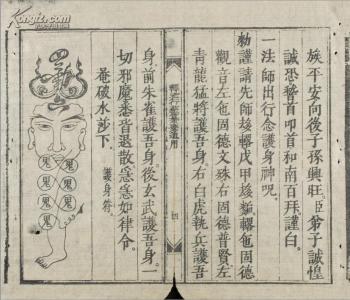 族平安向後子孫興旺臣弟子誠惶
誠恐稽首叩首和南百拜謹白
一法師出行念護身神呪
勅謹請先師發轉戊甲發轉包固德
觀音左包固德文殊右固德普賢左
青龍猛將護吾身右白虎執兵護吾
通用
四
身前朱雀護吾身後玄武護吾身一
切邪魔悉皆退散急急如律令
唵破水莎下
護身符
鬼
鬼
鬼
鬼
鬼
鬼
鬼